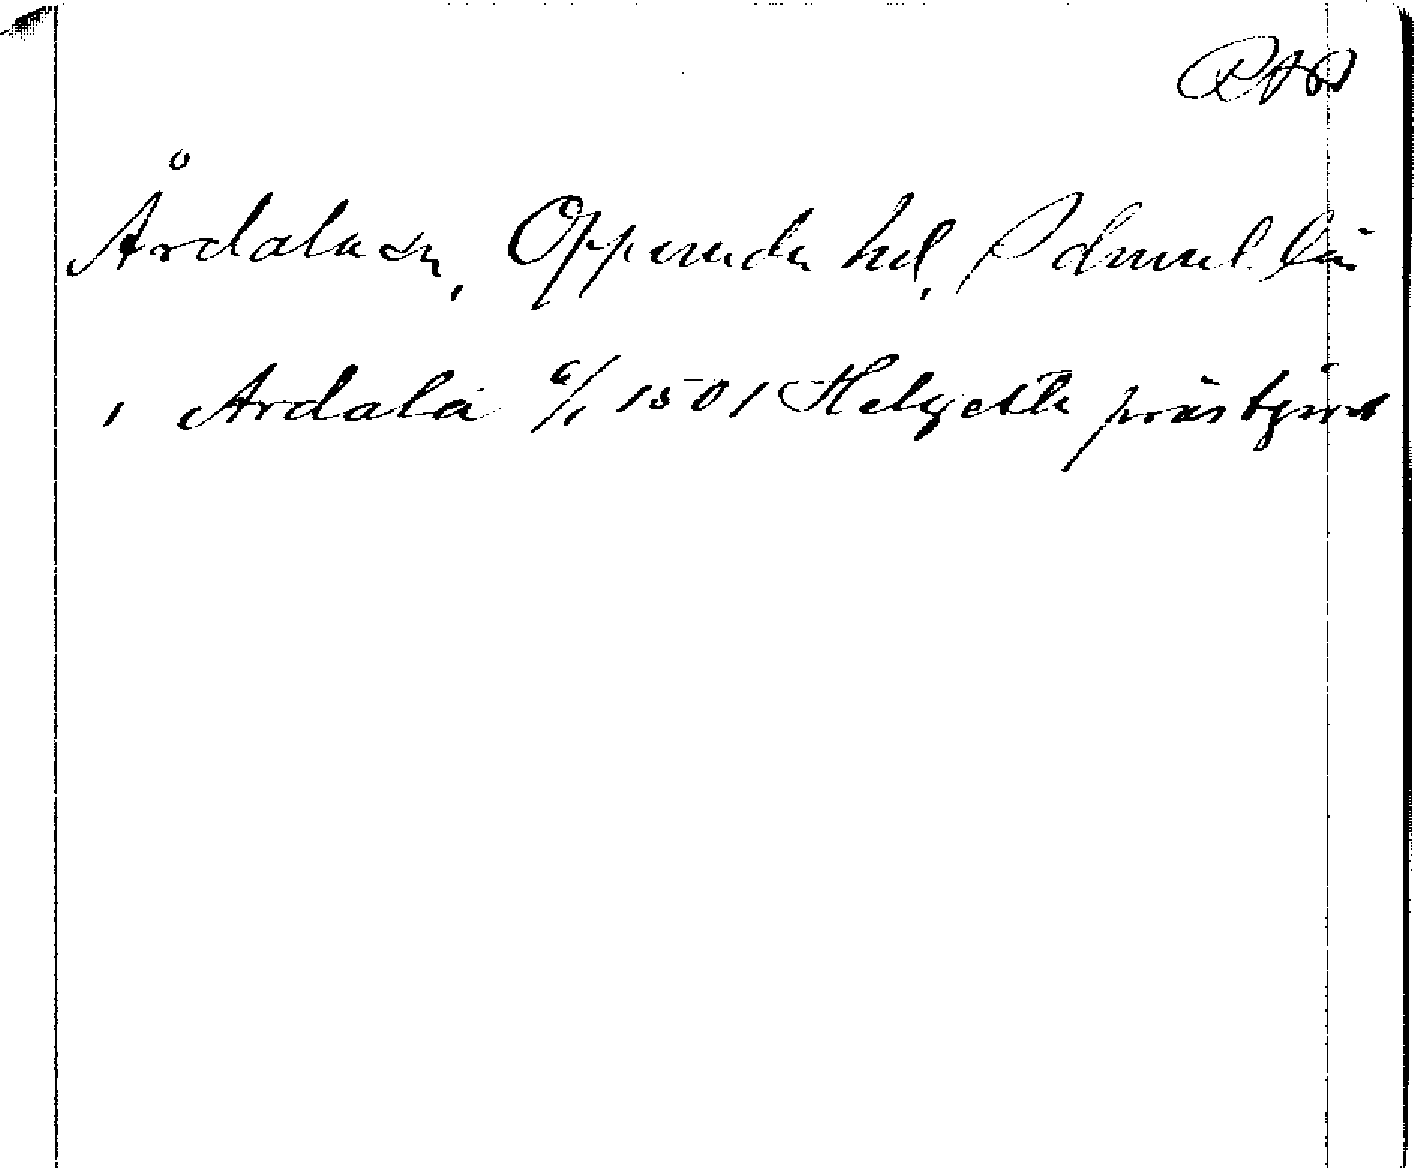 RAP
Årdala sn, Oppunda hd, Södml. län
i Ardala 6/1 1501 Helgesta prästgård